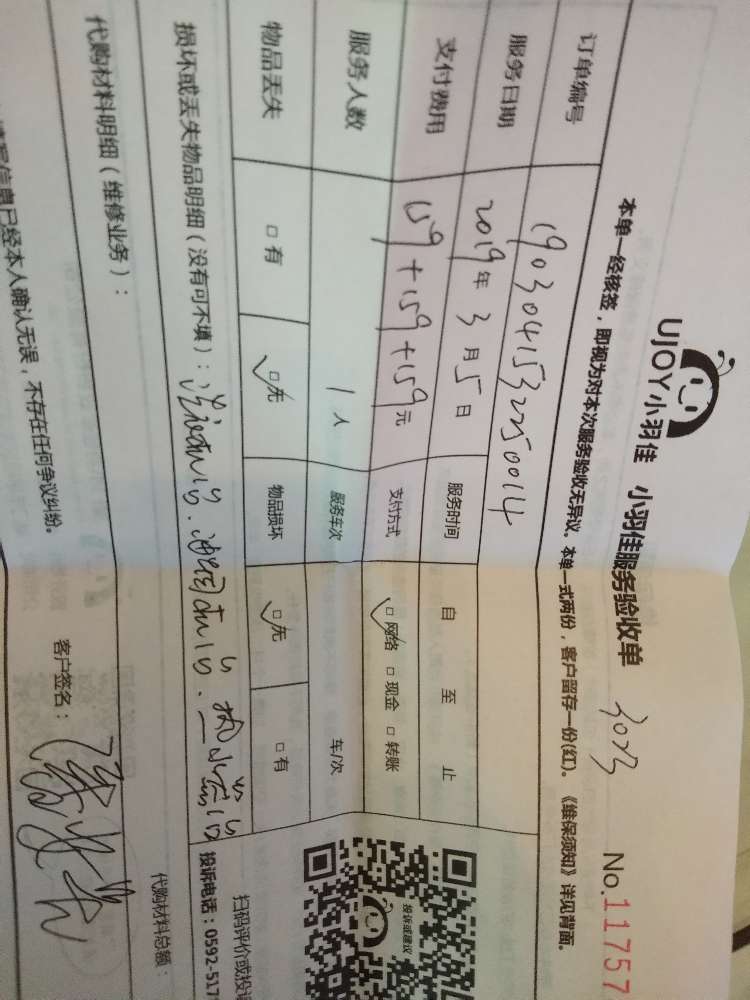 UJOY小羽佳 小羽佳服务验收单 3023 No.11757
本单一经核签，即视为对本次服务验收无异议。本单一式两份，客户留存一份(红)。《维保须知》详见背面。
订单编号 190304153250014
服务日期 2019年3月5日 服务时间 自 至 止
支付费用 159+159+159元 支付方式 ☑网络 □现金 □转账
服务人数 1人 服务车次 车/次
物品丢失 □有 ☑无 物品损坏 ☑无 □有
损坏或丢失物品明细（没有可不填）：
代购材料明细（维修业务）： 代购材料总额：
信息已经本人确认无误，不存在任何争议纠纷。 客户签名：
投诉或建议
扫码评价或投
投诉电话：0592-517